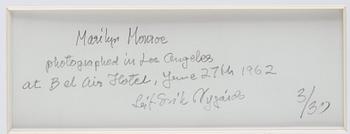 Marilyn Monroe
photographed in Los Angeles
at Bel Air Hotel, June 27th 1962
Leif-Erik Nygårds
3/30